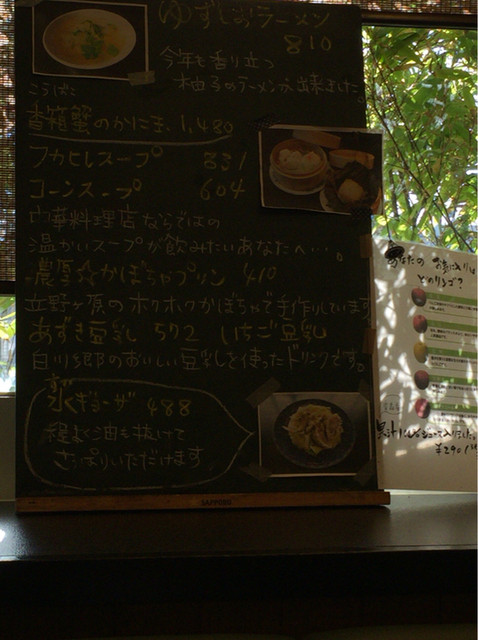 ゆずしおラーメン
810
今年も香り立つ
柚子のラーメンが出来ました。
こうばこ
香箱蟹のかに玉、1,480
フカヒレスープ 831
コーンスープ 604
中華料理店ならではの
温かいスープが飲みたいあなたへ・・・。
濃厚☆かぼちゃプリン 410
立野ヶ原のホクホクかぼちゃで手作りしています
あずき豆乳 572 いちご豆乳
白川郷のおいしい豆乳を使ったドリンクです。
水ギョーザ 488
程よく油も抜けて
さっぱりいただけます
SAPPORO
あなたの お気に入りは
どのりんご?
¥290